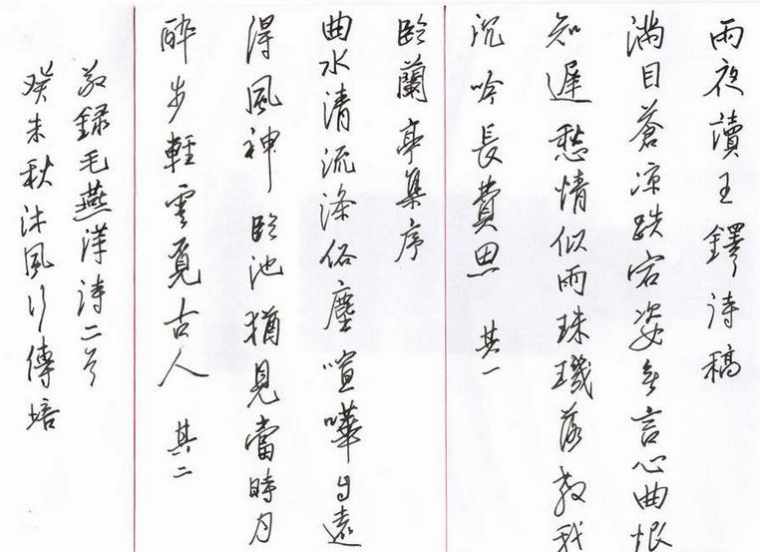 雨夜讀王鐸詩稿
滿目蒼凉跌宕姿無言心曲恨
知遲愁情似雨珠璣落教我
沉吟長費思 其一
臨蘭亭集序
曲水清流滌俗塵喧嘩自遠
得風神 臨池猶見當時月
醉步輕雲覓古人 其二
敬錄毛燕詩二首
癸未秋沐風傳培